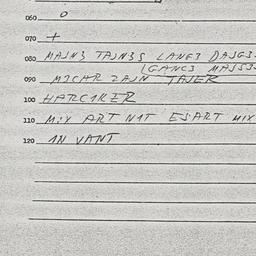 060 O
070 +
080 MAJN3 TAJN3S LANG3
(GANC3 MASS3
090 M3CAR ZAJN TAJER
100 HARC1KER
110 MiX ART N1T ES'ART MIX
120 1N VANT